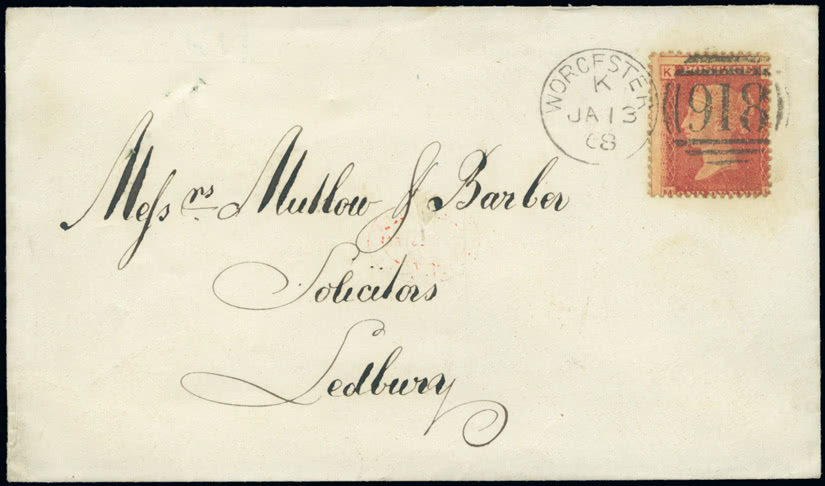 WORCESTER
K
JA 13
68
918
K
POSTAGE
M
Messrs Mutlow & Barber
Solicitors
Ledbury